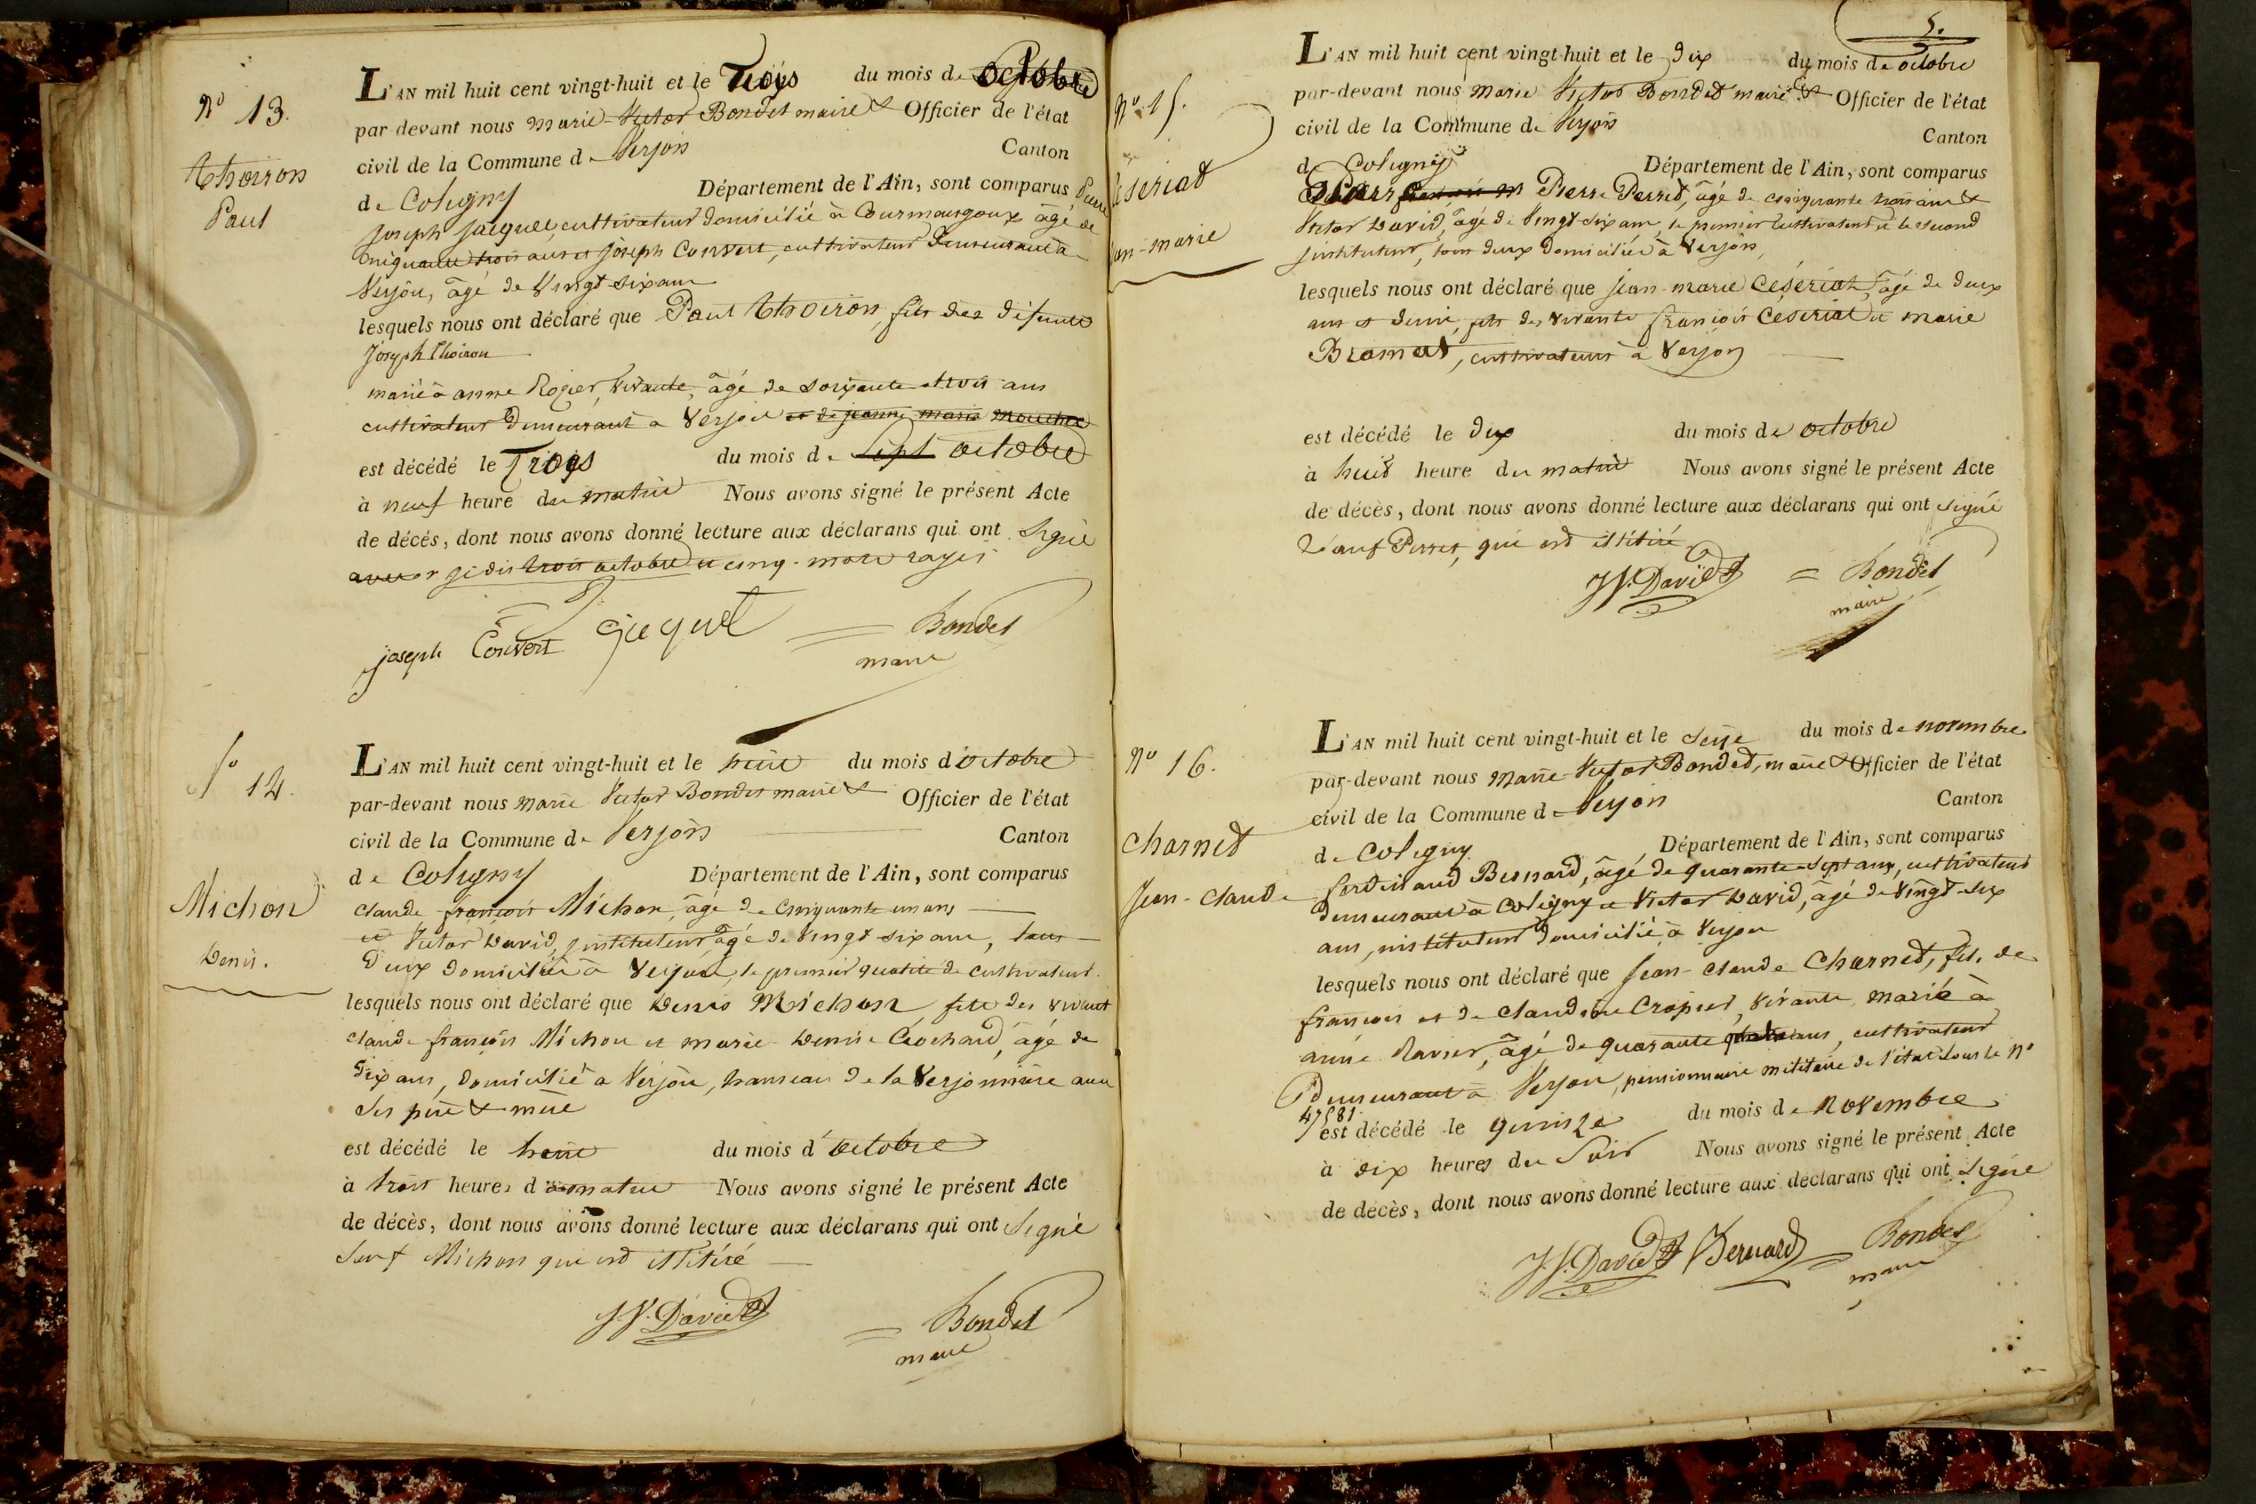 N° 13.
Thoiron
Paul
L'AN mil huit cent vingt-huit et le Trois du mois de octobre
par devant nous marie-Victor Bondet maire & Officier de l'état
civil de la Commune de Verjon Canton
de Coligny Département de l'Ain, sont comparus Pierre
joseph jacquet, cultivateur domicilié à Courmangoux âgé de
cinquante trois ans et joseph Convert, cultivateur demeurant à
Verjon, âgé de Vingt-six ans
lesquels nous ont déclaré que Paul Thoiron, fils des défunts
Joseph Thoiron
marié à anne Rozier, vivante, âgé de soixante-trois ans
cultivateur demeurant à Verjon et de jeanne marie
est décédé le Trois du mois de sept octobre
à neuf heure du matin Nous avons signé le présent Acte
de décés, dont nous avons donné lecture aux déclarans qui ont signé
trois octobre et cinq mots rayés
joseph Convert Jacquet = Bondet
maire
N° 14.
Michon
Denis.
L'AN mil huit cent vingt-huit et le huit du mois d'octobre
par-devant nous marie Victor Bondet maire & Officier de l'état
civil de la Commune de Verjon Canton
de Coligny Département de l'Ain, sont comparus
claude françois Michon, âgé de Cinquante un ans
et Victor David, instituteur âgé de Vingt-six ans, tous
deux domiciliés à Verjon, le premier qualité de cultivateur.
lesquels nous ont déclaré que Denis Michon fils des vivant
claude françois Michon et marie Denise Crochard, âgé de
dix ans, domicilié a Verjon, hameau de la Verjonnière avec
ses père & mère
est décédé le huit du mois d'octobre
à trois heures du matin Nous avons signé le présent Acte
de décès, dont nous avons donné lecture aux déclarans qui ont Signé
Sauf Michon qui est illitéré
J V. David = Bondet
maire
5.
N° 15.
Céseriat
jean-marie
L'AN mil huit cent vingt-huit et le dix du mois de octobre
par-devant nous marie Victor Bondet maire & Officier de l'état
civil de la Commune de Verjon Canton
de Coligny Département de l'Ain, sont comparus
Pierre Perret, âgé de cinquante trois ans &
Victor David, âgé de Vingt-six ans, le premier cultivateur et le second
instituteur, tous deux domiciliés à Verjon,
lesquels nous ont déclaré que jean-marie Céseriat, âgé de deux
ans et demi, fils des vivants françois Céseriat et marie
Bramet, cultivateurs à Verjon
est décédé le dix du mois de octobre
à huit heure du matin Nous avons signé le présent Acte
de décès, dont nous avons donné lecture aux déclarans qui ont signé
Sauf Perret, qui est illitéré
J V. David = Bondet
maire
N° 16.
Charnet
Jean-claude
L'AN mil huit cent vingt-huit et le seize du mois de novembre
par-devant nous marie Victor Bondet, maire & Officier de l'état
civil de la Commune de Verjon Canton
de Coligny Département de l'Ain, sont comparus
ferdinand Bernard, âgé de quarante-sept ans, cultivateur
demeurant à Coligny et Victor David, âgé de Vingt-six
ans, instituteur domicilié à Verjon
lesquels nous ont déclaré que Jean-claude Charnet, fils de
françois et de claudine Cropier, vivante, marié à
anne Ravier, âgé de quarante ans, cultivateur
demeurant à Verjon, pensionnaire militaire de l'état sous le N°
47581.
est décédé le quinze du mois de novembre
à dix heures du Soir Nous avons signé le présent Acte
de décès, dont nous avons donné lecture aux déclarans qui ont signé
J. V. David Bernard = Bondet
maire